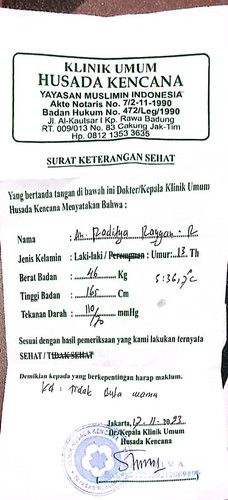 KLINIK UMUM
HUSADA KENCANA
YAYASAN MUSLIMIN INDONESIA
Akte Notaris No. 7/2-11-1990
Badan Hukum No. 472/Leg/1990
Jl. Al-Kautsar I Kp. Rawa Badung
RT. 009/013 No. 83 Cakung Jak-Tim
Hp. 0812 1353 3635
SURAT KETERANGAN SEHAT
Yang bertanda tangan di bawah ini Dokter/Kepala Klinik Umum
Husada Kencana Menyatakan Bahwa :
Nama : An. Raditya Rayyan. R
Jenis Kelamin : Laki-laki / Perempuan : Umur: 13. Th
Berat Badan : 46 Kg S: 36,2°C
Tinggi Badan : 165 Cm
Tekanan Darah : 110/70 mmHg
Sesuai dengan hasil pemeriksaan yang kami lakukan ternyata
SEHAT / TIDAK SEHAT
Demikian kepada yang berkepentingan harap maklum.
Tidak Buta warna
Jakarta, 12-11-2023
Dr/Kepala Klinik Umum
Husada Kencana